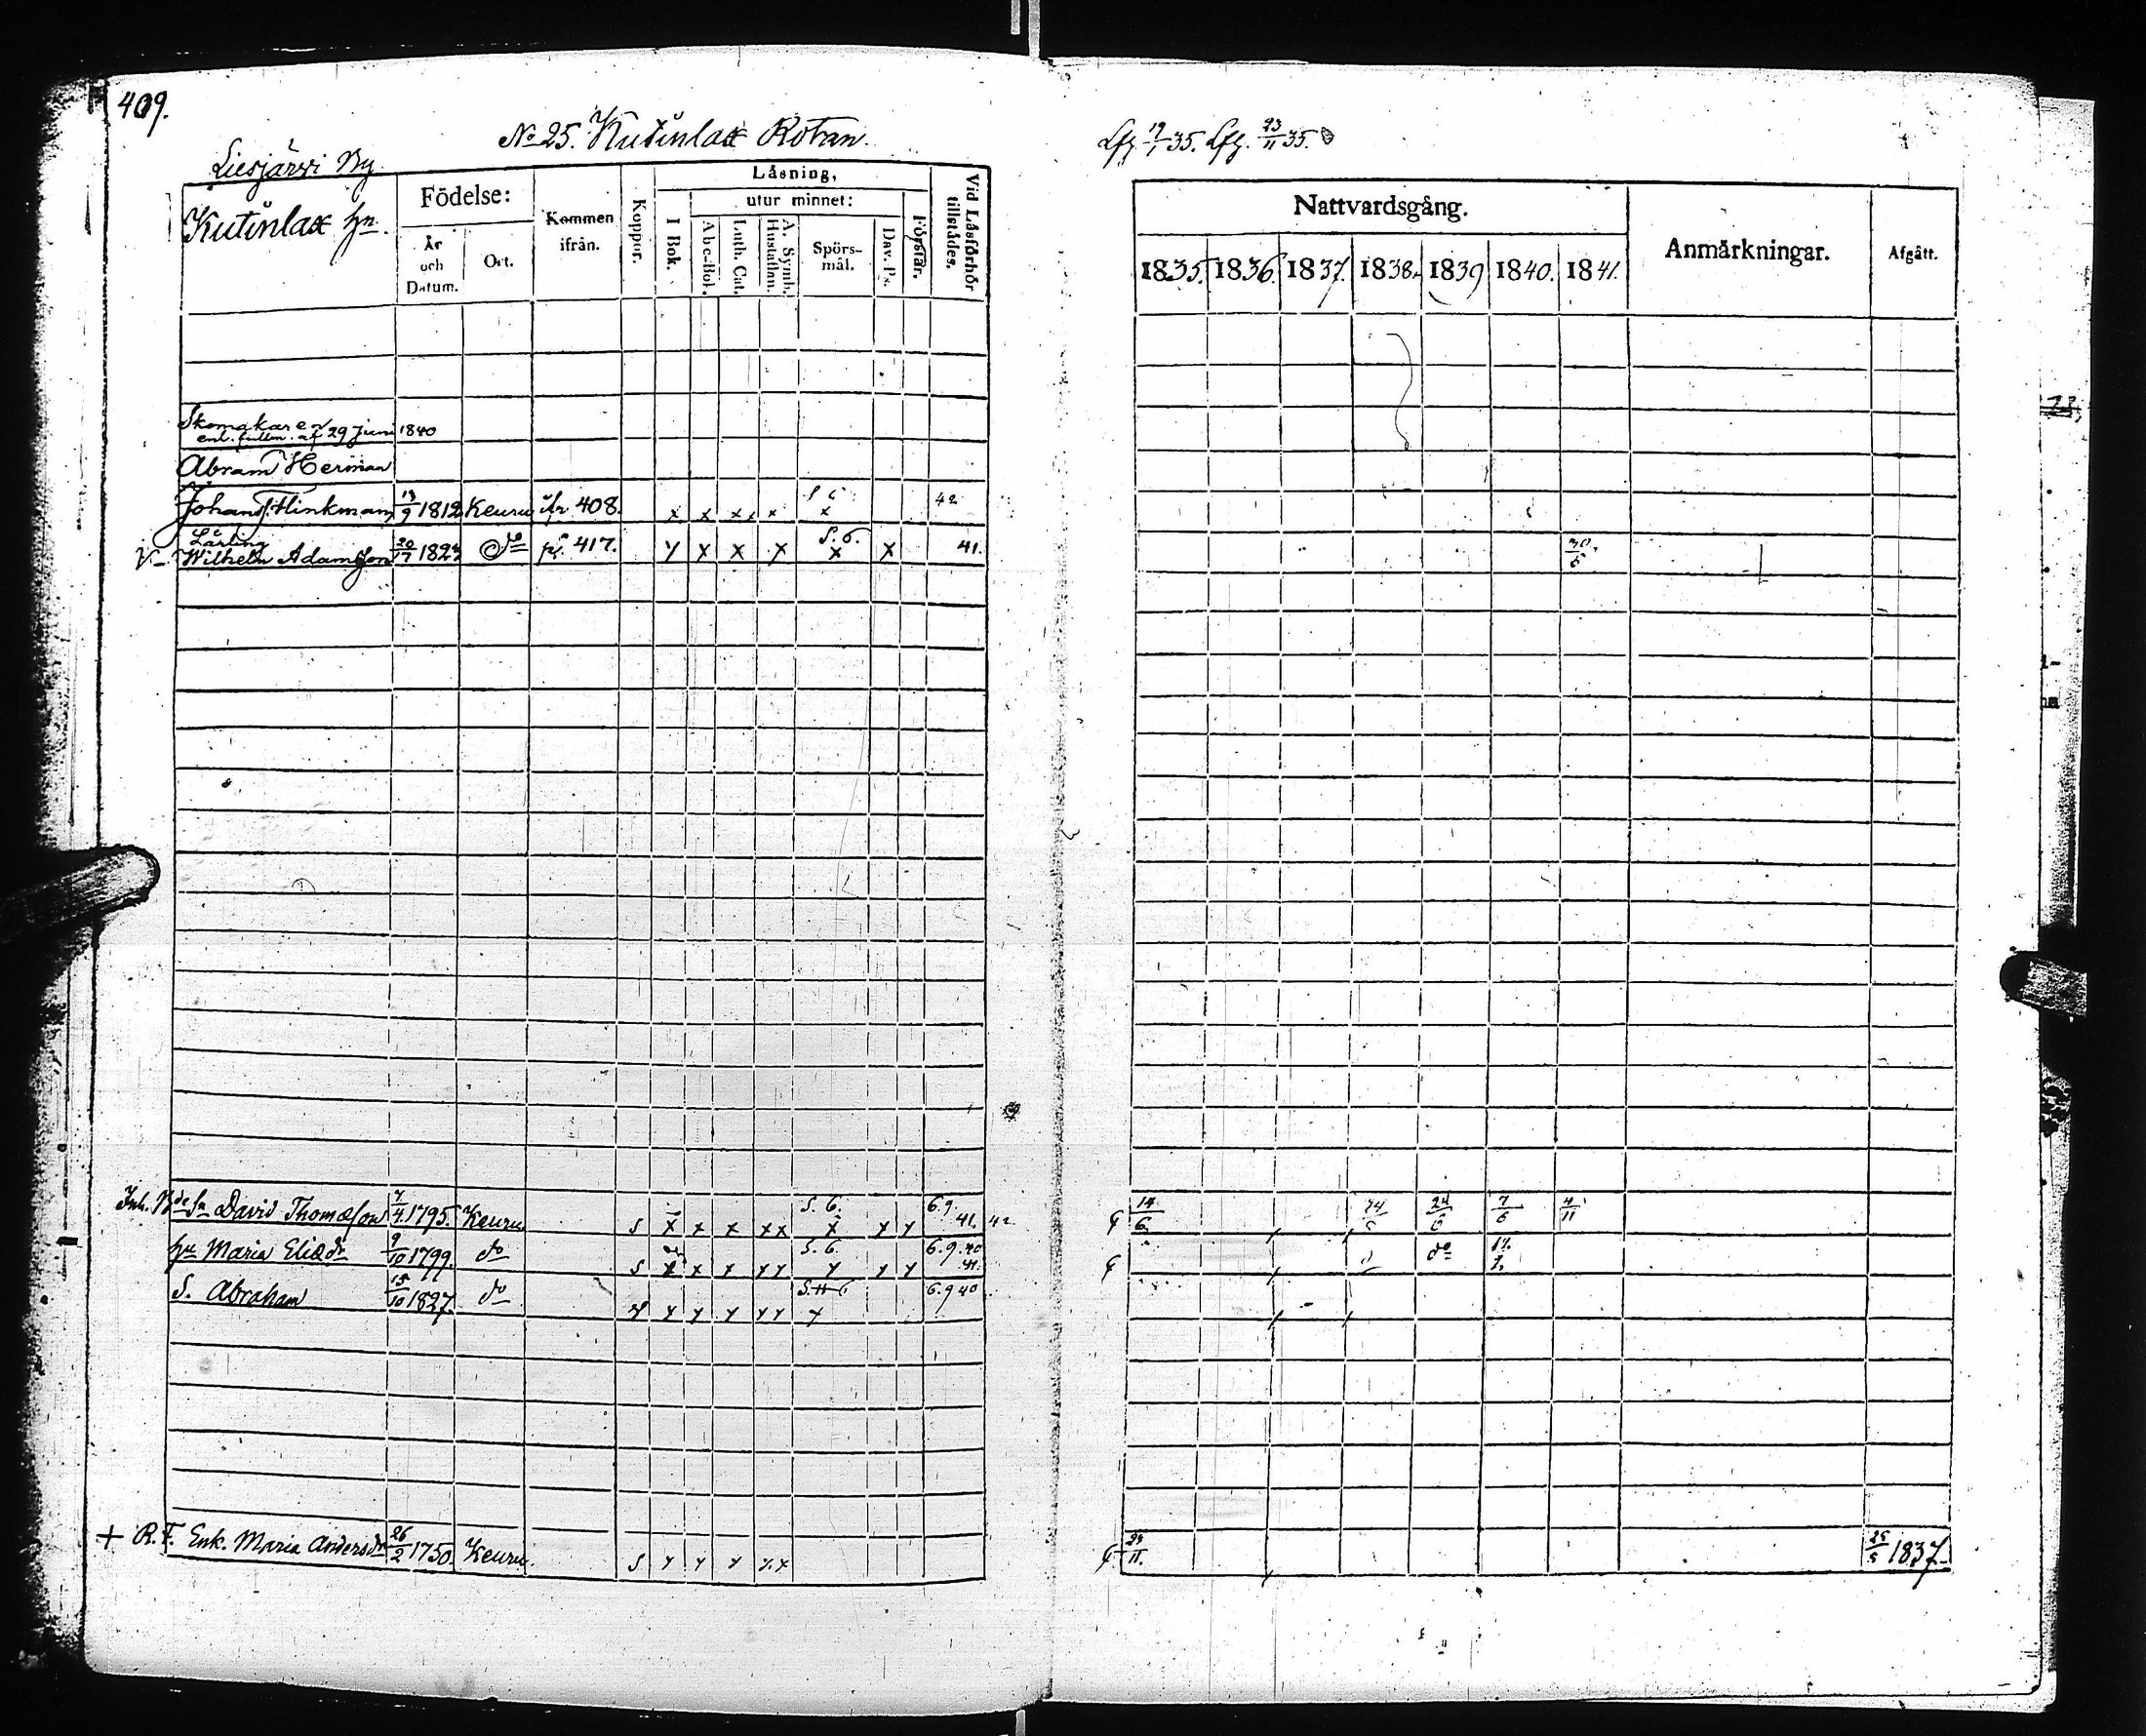 409.
No 25. Kutinlax Rotan.
Liesjärvi By
Kutinlax hn.
Födelse:
År och Datum.
Ort.
Kommen ifrån.
Koppor.
Låsning,
I Bok.
utur minnet:
Abc-Bok.
Luth. Cat.
A. Symb. Hustaflan.
Spörsmål.
Dav. Ps.
Förstår.
Vid Låsförhör tillstådes.
Skomakaren
enl. fullm. af 29 Juni 1840
Abram Herman
Johans. Hinkman 13/9 1812 Keuru fr 408. x x x x x 42
Lärling
V- Wilhelm Adamsson 20/7 182 do 417. x x x x S. 6. x x 41.
Inh. Bde Sn David Thomasson 7/4 1795. Keuru S x x x xx S. 6. x x x 6.9. 41. 42
hu Maria Eliædr 9/10 1799. do S x x x xx S. 6. x x x 6.9.40 41.
S. Abraham 15/10 1827. do x x x xx x 6.9 40
+ R. F. Enk. Maria Andersdr 26/2 1750. Keuru. S x x x xx
Lfg 19/1 35. Lfg. 23/11 35.
Nattvardsgång.
1835. 1836. 1837. 1838. 1839 1840. 1841.
Anmärkningar.
Afgått.
30/5
14/6 24/6 24/6 7/6 4/11
do
24/11. 25/5 1837.